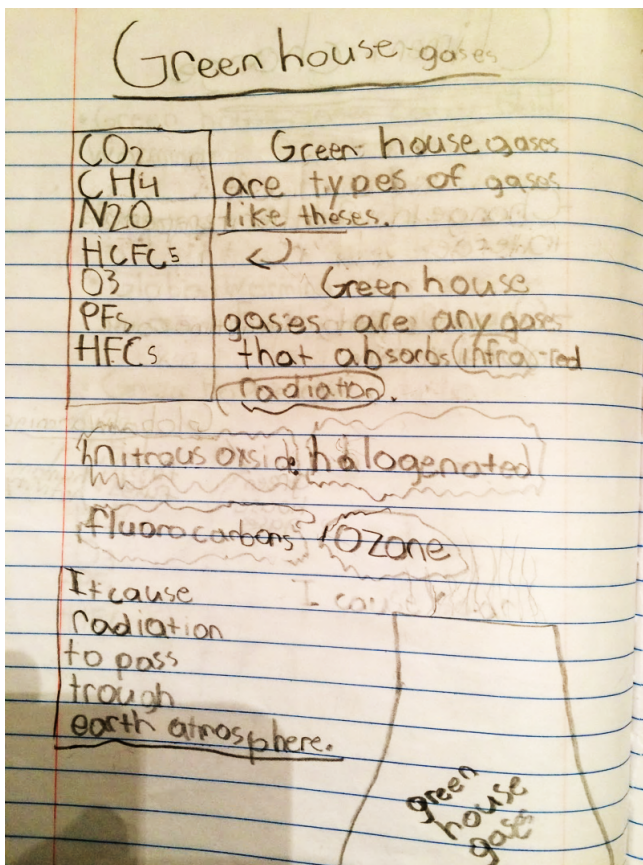 Green house gases
CO2
CH4
N2O
HCFCs
O3
PFs
HFCs
Green house gases
are types of gases
like theses.
Green house
gases are any gases
that absorbs infra-red
radiation.
nitrous oxside halogenated
fluorocarbons + Ozone
It cause
radiation
to pass
trough
earth atmosphere.
green
house
gases